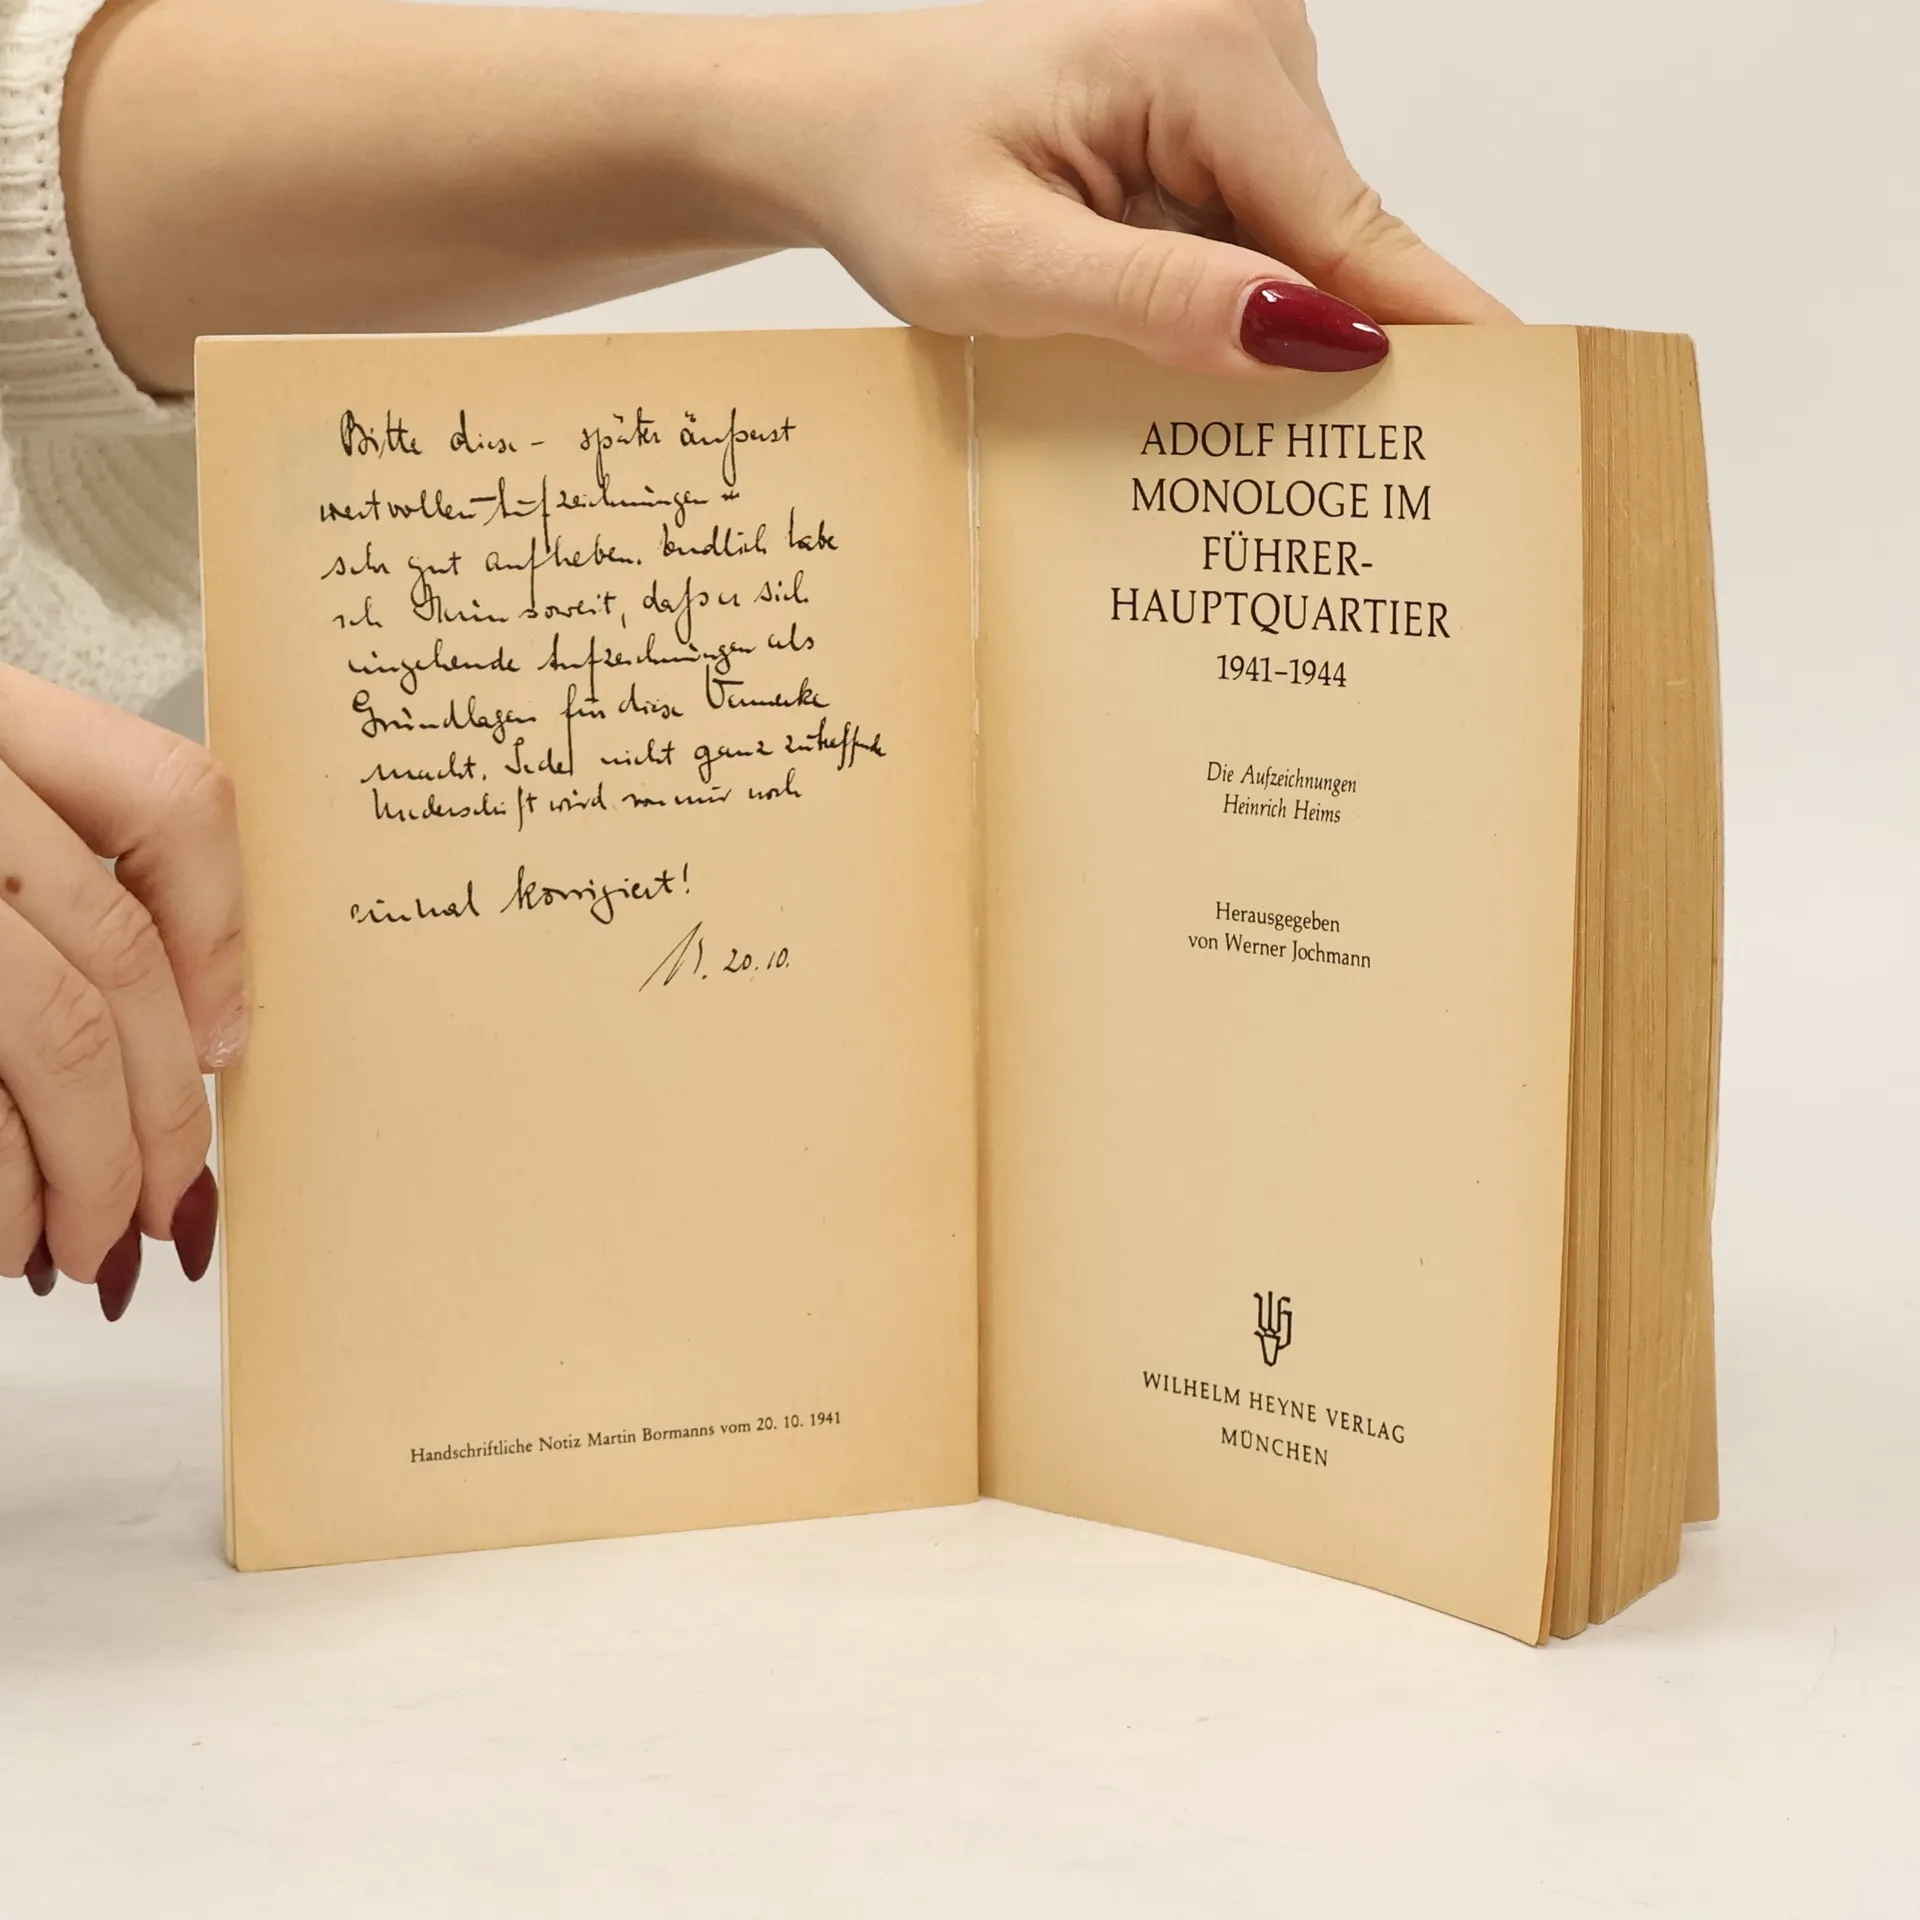 Bitte diese – später äußerst
wertvollen – Aufzeichnungen
sehr gut aufheben. Endlich habe
ich Heim soweit, daß er sich
eingehende Aufzeichnungen als
Grundlagen für diese Vermerke
macht. Jede nicht ganz zutreffende
Niederschrift wird von mir noch
einmal korrigiert!
B. 20.10.
Handschriftliche Notiz Martin Bormanns vom 20. 10. 1941
ADOLF HITLER
MONOLOGE IM
FÜHRER-
HAUPTQUARTIER
1941–1944
Die Aufzeichnungen
Heinrich Heims
Herausgegeben
von Werner Jochmann
WILHELM HEYNE VERLAG
MÜNCHEN